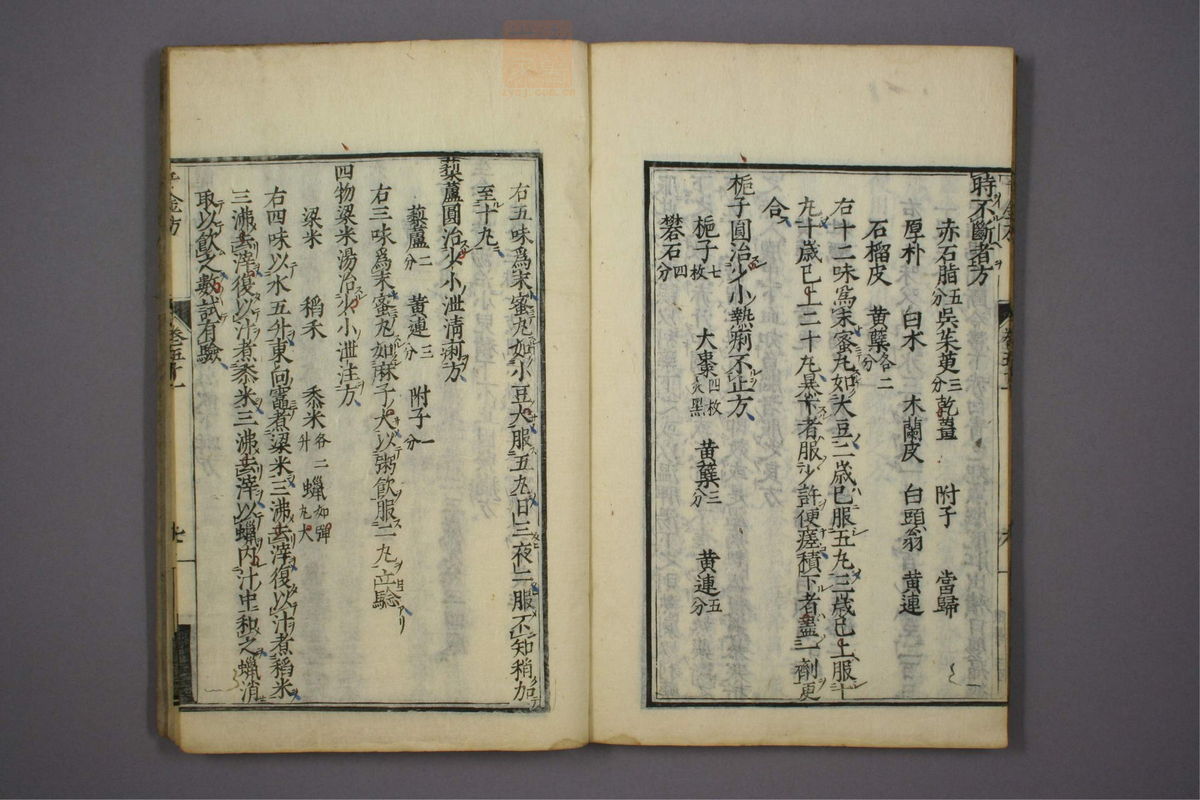 時不斷者方
赤石脂五分 吳茱萸三分 乾薑 附子 當歸
厚朴 白朮 木蘭皮 白頭翁 黃連
石榴皮 黃蘗各二分
右十二味爲末蜜丸如大豆二歲已服五丸三歲已上服十
丸十歲已上二十丸暴下者服少許便瘥積下者盡一劑更
合
梔子圓治少小熱痢不止方
梔子七枚 大棗四枚炙黑 黃蘗三分 黃連五分
礬石四分
右五味爲末蜜丸如小豆大服五丸日三夜二服不知稍加
至十丸
藜蘆圓治少小泄清痢方
藜蘆二分 黃連三分 附子一分
右三味爲末蜜丸如麻子大以粥飲服二丸立驗
四物粱米湯治少小泄注方
粱米 稻禾 黍米各二升 蠟如彈丸大
右四味以水五升東向竈煮粱米三沸去滓復以汁煮稻米
三沸去滓復以汁煮黍米三沸去滓以蠟內汁中和之蠟消
取以飲之數試有驗
千金方 卷五